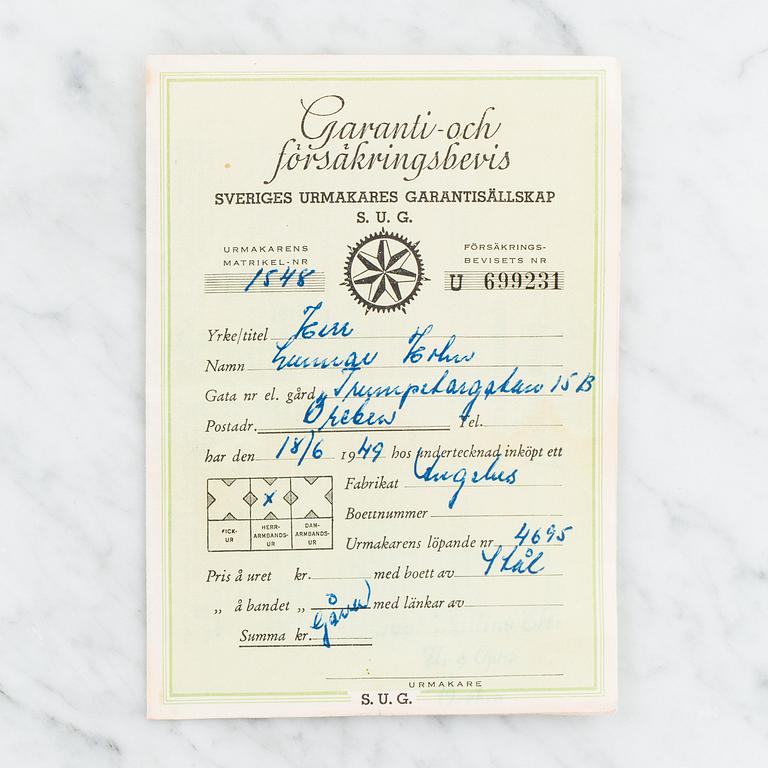 Garanti- och
försäkringsbevis
SVERIGES URMAKARES GARANTISÄLLSKAP
S. U. G.
URMAKARENS
MATRIKEL-NR
1548
FÖRSÄKRINGS-
BEVISETS NR
U 699231
Yrke/titel Herr
Namn Gunnar Holm
Gata nr el. gård Trumpetaregatan 15 B
Postadr. Örebro Tel.
har den 18/6 1949 hos undertecknad inköpt ett
FICK-
UR
X
HERR-
ARMBANDS-
UR
DAM-
ARMBANDS-
UR
Fabrikat Angelus
Boettnummer
Urmakarens löpande nr 4695
Pris å uret kr. med boett av Stål
„ å bandet „ med länkar av
Summa kr. Gåva
URMAKARE
S. U. G.